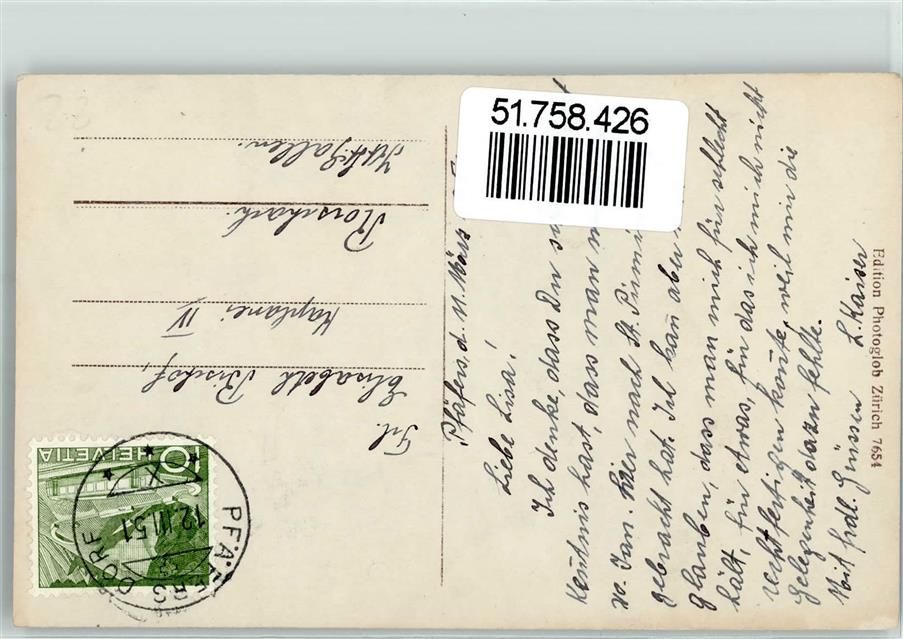 51.758.426
Pfäfers, d. 11. März
Liebe Lisa!
Ich denke, dass Du
Kenntnis hast, dass man
20. Jan. hier nach St.
gebracht hat. Ich kann aber
glauben, dass man mich für schlecht
hält, für etwas, für das ich mich nicht
rechtfertigen konnte, weil mir die
Gelegenheit dazu fehlte.
Mit frdl. Grüssen L. Kaiser
Edition Photoglob Zürich 7654
Frl.
Elisabeth Bischof,
Kaplanei IV
Rorschach.
Kt. St. Gallen.
HELVETIA
10
PFÄFERS DORF
12.III.51